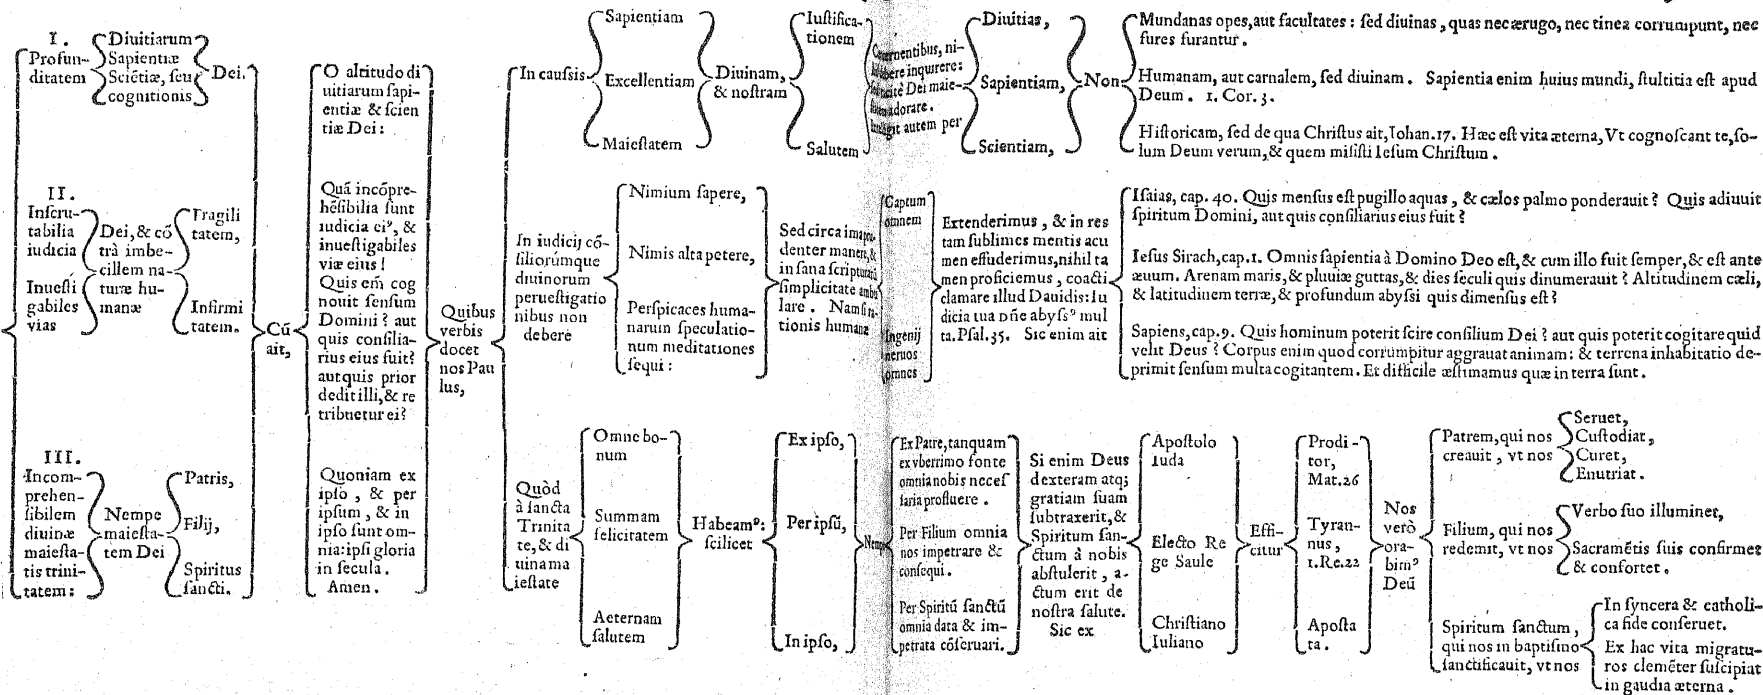 I.
Profun-
ditatem
Diuitiarum
Sapientiæ
Sciẽtiæ, ſeu
cognitionis
Dei.
II.
Inſcru-
tabilia
iudicia
Inueſti
gabiles
vias
Dei, & cõ
trà imbe-
cillem na-
turæ hu-
manæ
Fragili
tatem,
Infirmi
tatem.
III.
Incom-
prehen-
ſibilem
diuinæ
maieſta-
tis trini-
tatem:
Nempe
maieſta-
tem Dei
Patris,
Filij,
Spiritus
ſancti.
Cũ
ait,
O altitudo di
uitiarum ſapi-
entiæ & ſcien
tiæ Dei:
Quã incõpre-
hẽſibilia ſunt
iudicia eiꝰ, &
inueſtigabiles
viæ eius!
Quis em̃ cog
nouit ſenſum
Domini? aut
quis conſilia-
rius eius fuit?
aut quis prior
dedit illi, & re
tribuetur ei?
Quoniam ex
ipſo, & per
ipſum, & in
ipſo ſunt om-
nia: ipſi gloria
in ſecula.
Amen.
Quibus
verbis
docet
nos Pau
lus,
In cauſsis
Sapientiam
Excellentiam
Maieſtatem
Diuinam,
& noſtram
Iuſtifica-
tionem
Salutem
nibus, ni-
inquirere:
Dei maie-
adorare.
autem per
Diuitias,
Sapientiam,
Scientiam,
Non
Mundanas opes, aut facultates: ſed diuinas, quas nec ærugo, nec tinea corrumpunt, nec
fures furantur.
Humanam, aut carnalem, ſed diuinam. Sapientia enim huius mundi, ſtultitia eſt apud
Deum. 1. Cor. 3.
Hiſtoricam, ſed de qua Chriſtus ait, Iohan. 17. Hæc eſt vita æterna, Vt cognoſcant te, ſo-
lum Deum verum, & quem miſiſti Ieſum Chriſtum.
In iudicij cõ-
ſiliorúmque
diuinorum
perueſtigatio
nibus non
debere
Nimium ſapere,
Nimis alta petere,
Perſpicaces huma-
narum ſpeculatio-
num meditationes
ſequi:
Sed circa
denter manere, &
in ſana ſcripturarũ
ſimplicitate ambu
lare. Nam ſi ra-
tionis humanæ
Captum
omnem
Ingenij
neruos
omnes
Extenderimus, & in res
tam ſublimes mentis acu
men effuderimus, nihil ta
men proficiemus, coacti
clamare illud Dauidis: Iu
dicia tua Dñe abyſſꝰ mul
ta. Pſal. 35. Sic enim ait
Iſaias, cap. 40. Quis menſus eſt pugillo aquas, & cælos palmo ponderauit? Quis adiuuit
ſpiritum Domini, aut quis conſiliarius eius fuit?
Ieſus Sirach, cap. 1. Omnis ſapientia à Domino Deo eſt, & cum illo fuit ſemper, & eſt ante
æuum. Arenam maris, & pluuiæ guttas, & dies ſeculi quis dinumerauit? Altitudinem cæli,
& latitudinem terræ, & profundum abyſsi quis dimenſus eſt?
Sapiens, cap. 9. Quis hominum poterit ſcire conſilium Dei? aut quis poterit cogitare quid
velit Deus? Corpus enim quod corrumpitur aggrauat animam: & terrena inhabitatio de-
primit ſenſum multa cogitantem. Et difficile æſtimamus quæ in terra ſunt.
Quòd
à ſancta
Trinita
te, & di
uina ma
ieſtate
Omne bo-
num
Summam
felicitatem
Aeternam
ſalutem
Habeamꝰ:
ſcilicet
Ex ipſo,
Per ipſũ,
In ipſo,
Nempe
Ex Patre, tanquam
ex vberrimo fonte
omnia nobis neceſ
ſaria profluere.
Per Filium omnia
nos impetrare &
conſequi.
Per Spiritũ ſanctũ
omnia data & im-
petrata cõſeruari.
Si enim Deus
dexteram atq;
gratiam ſuam
ſubtraxerit, &
Spiritum ſan-
ctum à nobis
abſtulerit, a-
ctum erit de
noſtra ſalute.
Sic ex
Apoſtolo
Iuda
Electo Re
ge Saule
Chriſtiano
Iuliano
Effi-
citur
Prodi-
tor,
Mat. 26
Tyran-
nus,
1. Re. 22
Apoſta
ta.
Nos
verò
ora-
bimꝰ
Deũ
Patrem, qui nos
creauit, vt nos
Seruet,
Cuſtodiat,
Curet,
Enutriat.
Filium, qui nos
redemit, vt nos
Verbo ſuo illuminet,
Sacramẽtis ſuis confirmet
& confortet.
Spiritum ſanctum,
qui nos in baptiſmo
ſanctificauit, vt nos
In ſyncera & catholi-
ca fide conſeruet.
Ex hac vita migratu-
ros clemẽter ſuſcipiat
in gaudia æterna.